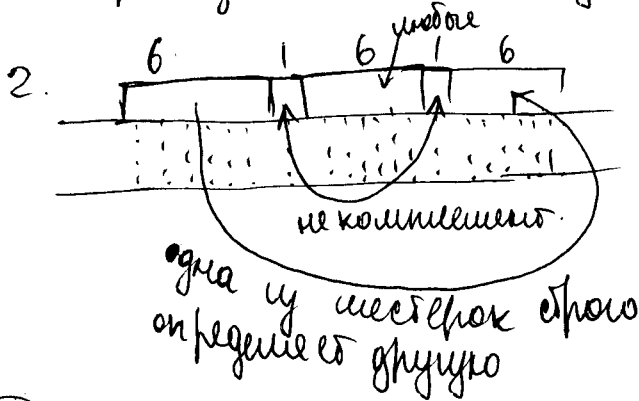 любые
6 1 6 1 6
2.
не комплемент.
одна из шестерок строго
определяет другую